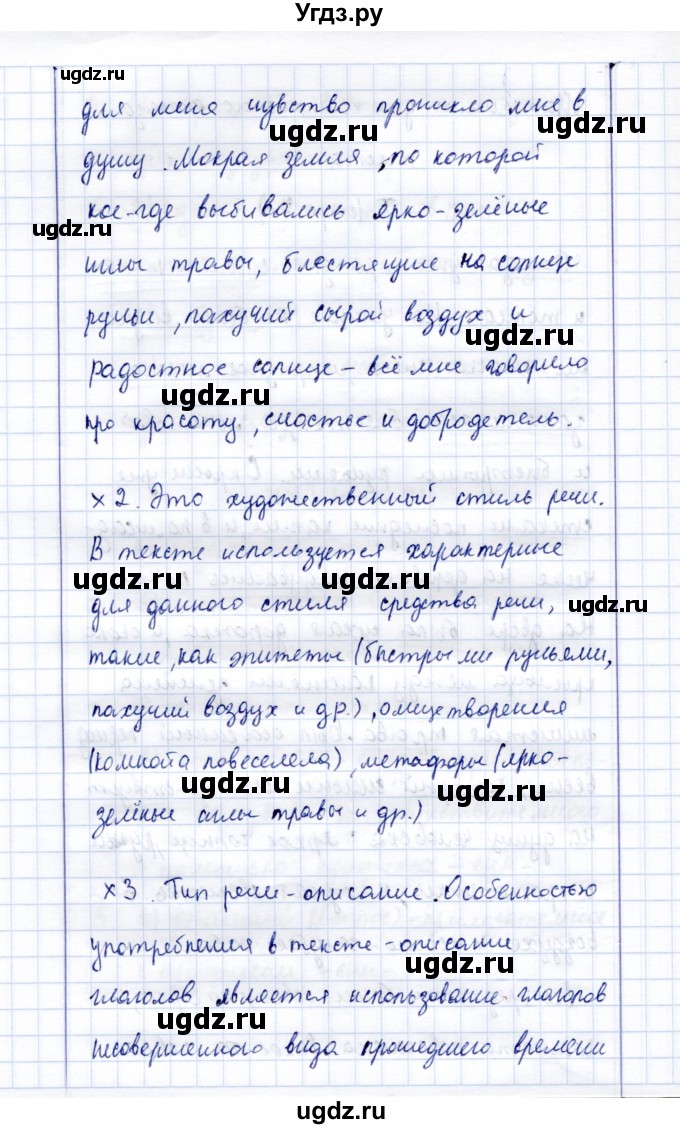 Угдз.ру
ugdz.ru
для меня чувство проникло мне в
ugdz.ru
душу. Мокрая земля, по которой
кое-где выбивались ярко-зелёные
ugdz.ru ugdz.ru
иглы травы, блестящие на солнце
ручьи, пахучий сырой воздух и
радостное солнце - всё мне говорило
ugdz.ru
про красоту, счастье и добродетель.
х 2. Это художественный стиль речи.
ugdz.ru
В тексте используется характерные
ugdz.ru ugdz.ru
для данного стиля средства речи,
ugdz.ru
такие, как эпитеты (быстрыми ручьями,
пахучий воздух и др.), олицетворения
ugdz.ru
(комната повеселела), метафоры (ярко-
ugdz.ru
зелёные иглы травы и др.)
х 3. Тип речи - описание. Особенностью
ugdz.ru
употребления в тексте - описании
ugdz.ru
глаголов является использование глаголов
ugdz.ru
несовершенного вида прошедшего времени
ugdz.ru